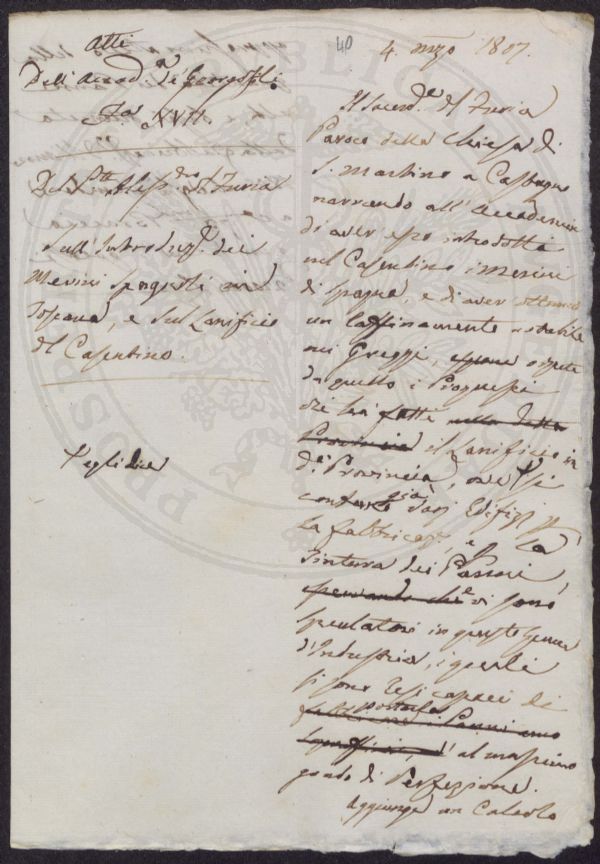 Atti
Dell'Accad.a de Georgofili.
40
4. Mzo 1807.
Del
Aless.dro del Furia
sull'Introduz.e dei
Merini spagnoli in
Toscana, e sul Lanificio
del Casentino.
Il Sacerd.e del Furia
Paroco della Chiesa di
S. Martino a Castagno
narrando all'Accademia
di aver esso introdotti
nel Casentino i Merini
di Spagna, e di aver ottenuto
un raffinamento notabile
nei Greggi, espone
i Progressi
che ha fatti nella detta
Provincia il Lanificio in
d.a Provincia, ove si
contano varj Edifizj p
la fabbricaz.e, e p la
tintura dei Panni,
che vi sono
speculatori in questo genere
d'Industria, i quali
si sono resi capaci di
portarli
al massimo
grado di Perfezione.
Aggiunge un Calcolo